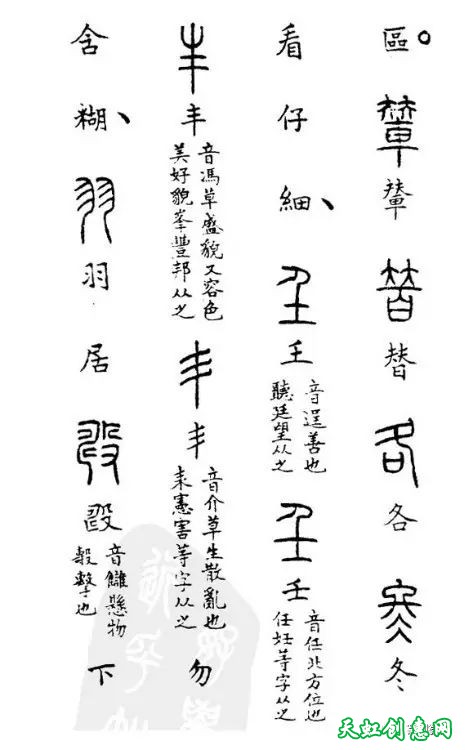 區。輦輦替替各各冬冬
看仔細、𡈼𡈼
音逞善也
聽廷望从之
壬壬
音任北方位也
任妊等字从之
丰丰
音馮草盛貌又容色
美好貌峯豐邦从之
丯丯
音介草生散亂也
耒憲害等字从之
勿
含糊、羽羽居
音雠懸物
擊也
下
天虹创意网